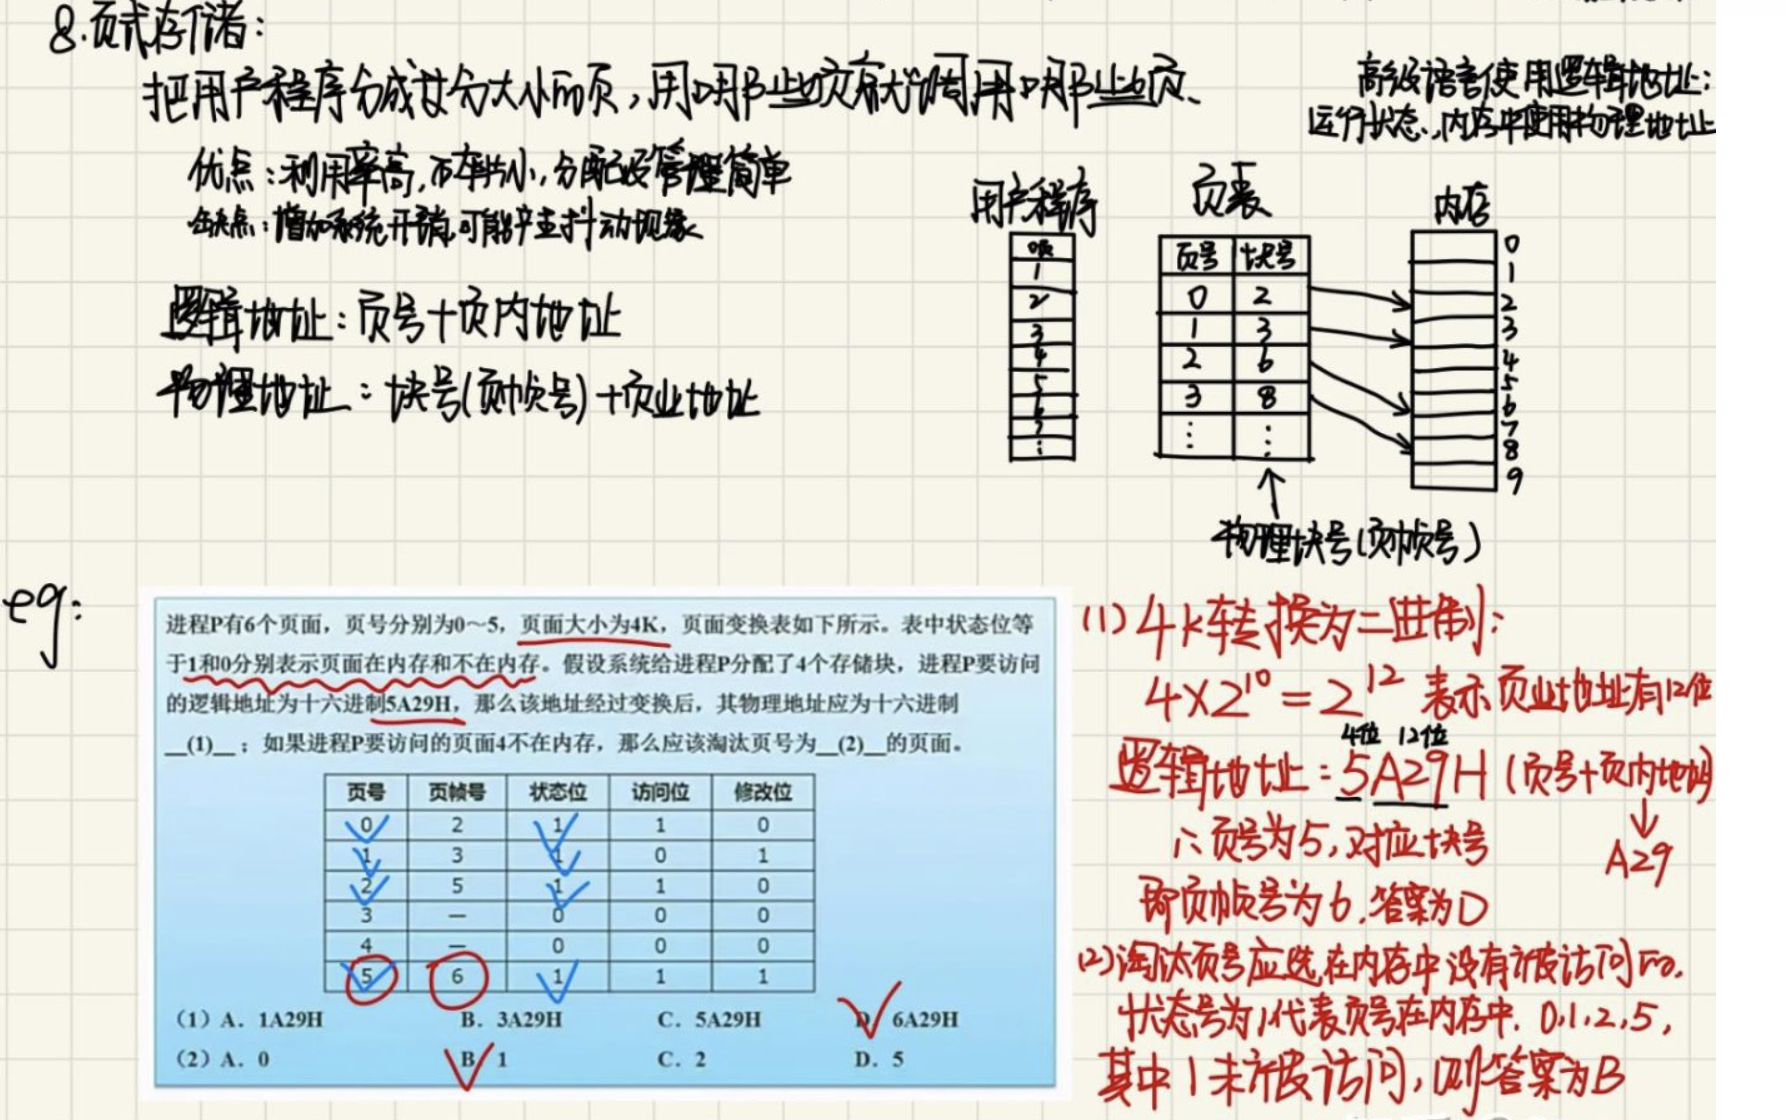 8.页式存储：
把用户程序分成等分大小的页，用哪些页就调用哪些页、
高级语言使用逻辑地址；
运行状态，内存中使用物理地址
优点：利用率高，碎片小，分配及管理简单
缺点：增加系统开销，可能产生抖动现象
逻辑地址：页号+页内地址
物理地址：块号(页帧号)+页内地址
用户程序 页表 内存
1
2
3
4
5
6
7
⋮
页号 块号
0 2
1 3
2 6
3 8
⋮ ⋮
0
1
2
3
4
5
6
7
8
9
物理块号(页帧号)
eg:
进程P有6个页面，页号分别为0～5，页面大小为4K，页面变换表如下所示。表中状态位等
于1和0分别表示页面在内存和不在内存。假设系统给进程P分配了4个存储块，进程P要访问
的逻辑地址为十六进制5A29H，那么该地址经过变换后，其物理地址应为十六进制
__(1)__；如果进程P要访问的页面4不在内存，那么应该淘汰页号为__(2)__的页面。
页号 页帧号 状态位 访问位 修改位
0 2 1 1 0
1 3 1 0 1
2 5 1 1 0
3 — 0 0 0
4 — 0 0 0
5 6 1 1 1
（1）A．1A29H B．3A29H C．5A29H D．6A29H
（2）A．0 B．1 C．2 D．5
(1) 4k转换为二进制：
4×2¹⁰=2¹² 表示页内地址有12位
4位 12位
逻辑地址：5A29H(页号+页内地址)
A29
∴页号为5，对应块号
即页帧号为6，答案为D
(2)淘汰页号应选在内存中没有被访问的.
状态号为1代表页号在内存中. 0,1,2,5,
其中1未被访问，则答案为B